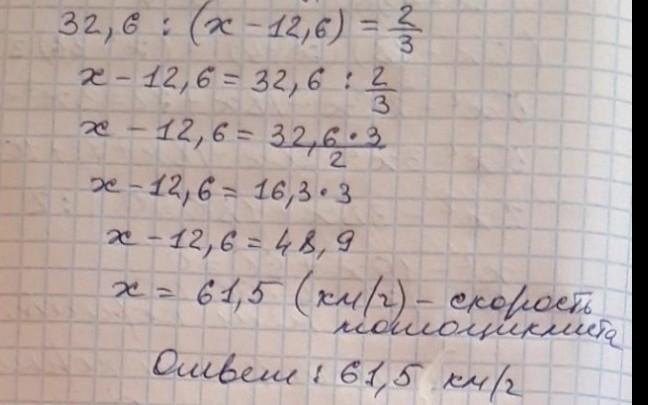 32,6 : (x - 12,6) = 2/3
x - 12,6 = 32,6 : 2/3
x - 12,6 = 32,6 · 3/2
x - 12,6 = 16,3 · 3
x - 12,6 = 48,9
x = 61,5 (км/г) - скорость
мотоциклиста
Ответ: 61,5 км/г